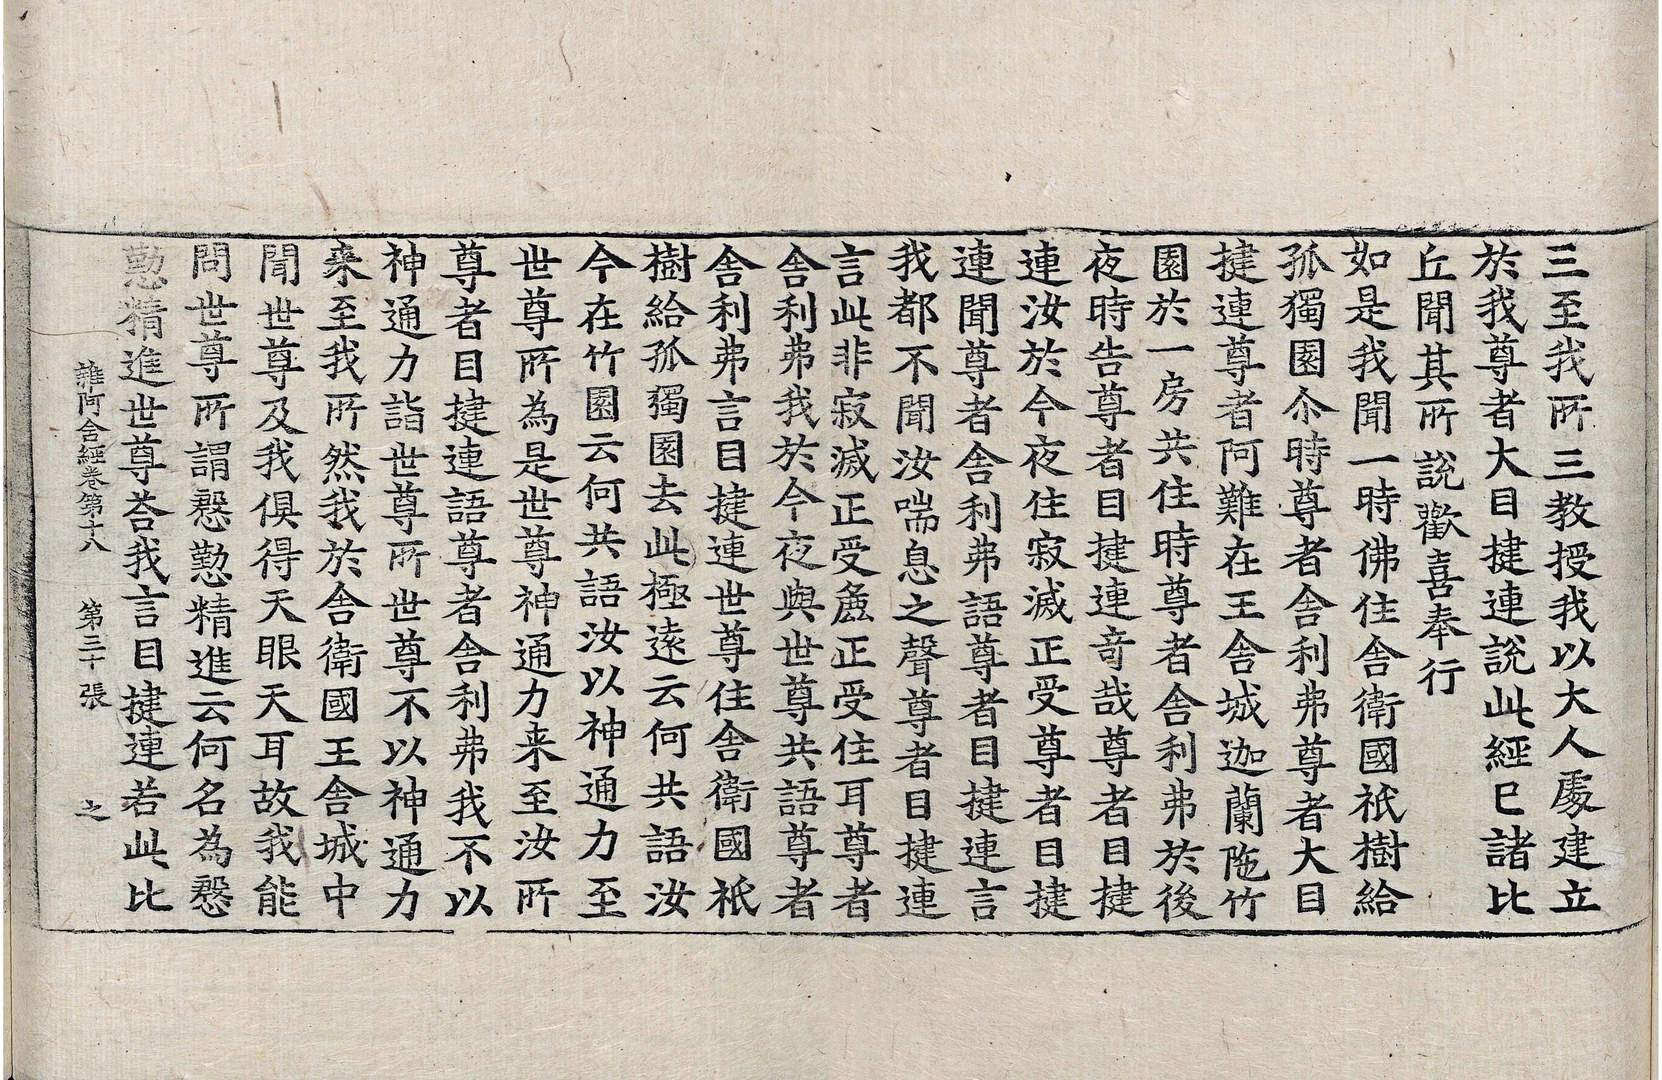 三至我所三教授我以大人處建立
於我尊者大目揵連說此經已諸比
丘聞其所說歡喜奉行
如是我聞一時佛住舍衛國祇樹給
孤獨園尒時尊者舍利弗尊者大目
揵連尊者阿難在王舍城迦蘭陁竹
園於一房共住時尊者舍利弗於後
夜時告尊者目揵連竒哉尊者目揵
連汝於今夜住寂滅正受尊者目揵
連聞尊者舍利弗語尊者目揵連言
我都不聞汝喘息之聲尊者目揵連
言此非寂滅正受麁正受住耳尊者
舍利弗我於今夜與世尊共語尊者
舍利弗言目揵連世尊住舍衛國祇
樹給孤獨園去此極遠云何共語汝
今在竹園云何共語汝以神通力至
世尊所為是世尊神通力来至汝所
尊者目揵連語尊者舍利弗我不以
神通力詣世尊所世尊不以神通力
来至我所然我於舍衛國王舍城中
聞世尊及我俱得天眼天耳故我能
問世尊所謂慇懃精進云何名為慇
懃精進世尊荅我言目揵連若此比
雜阿含經卷第十八 第三十張 之